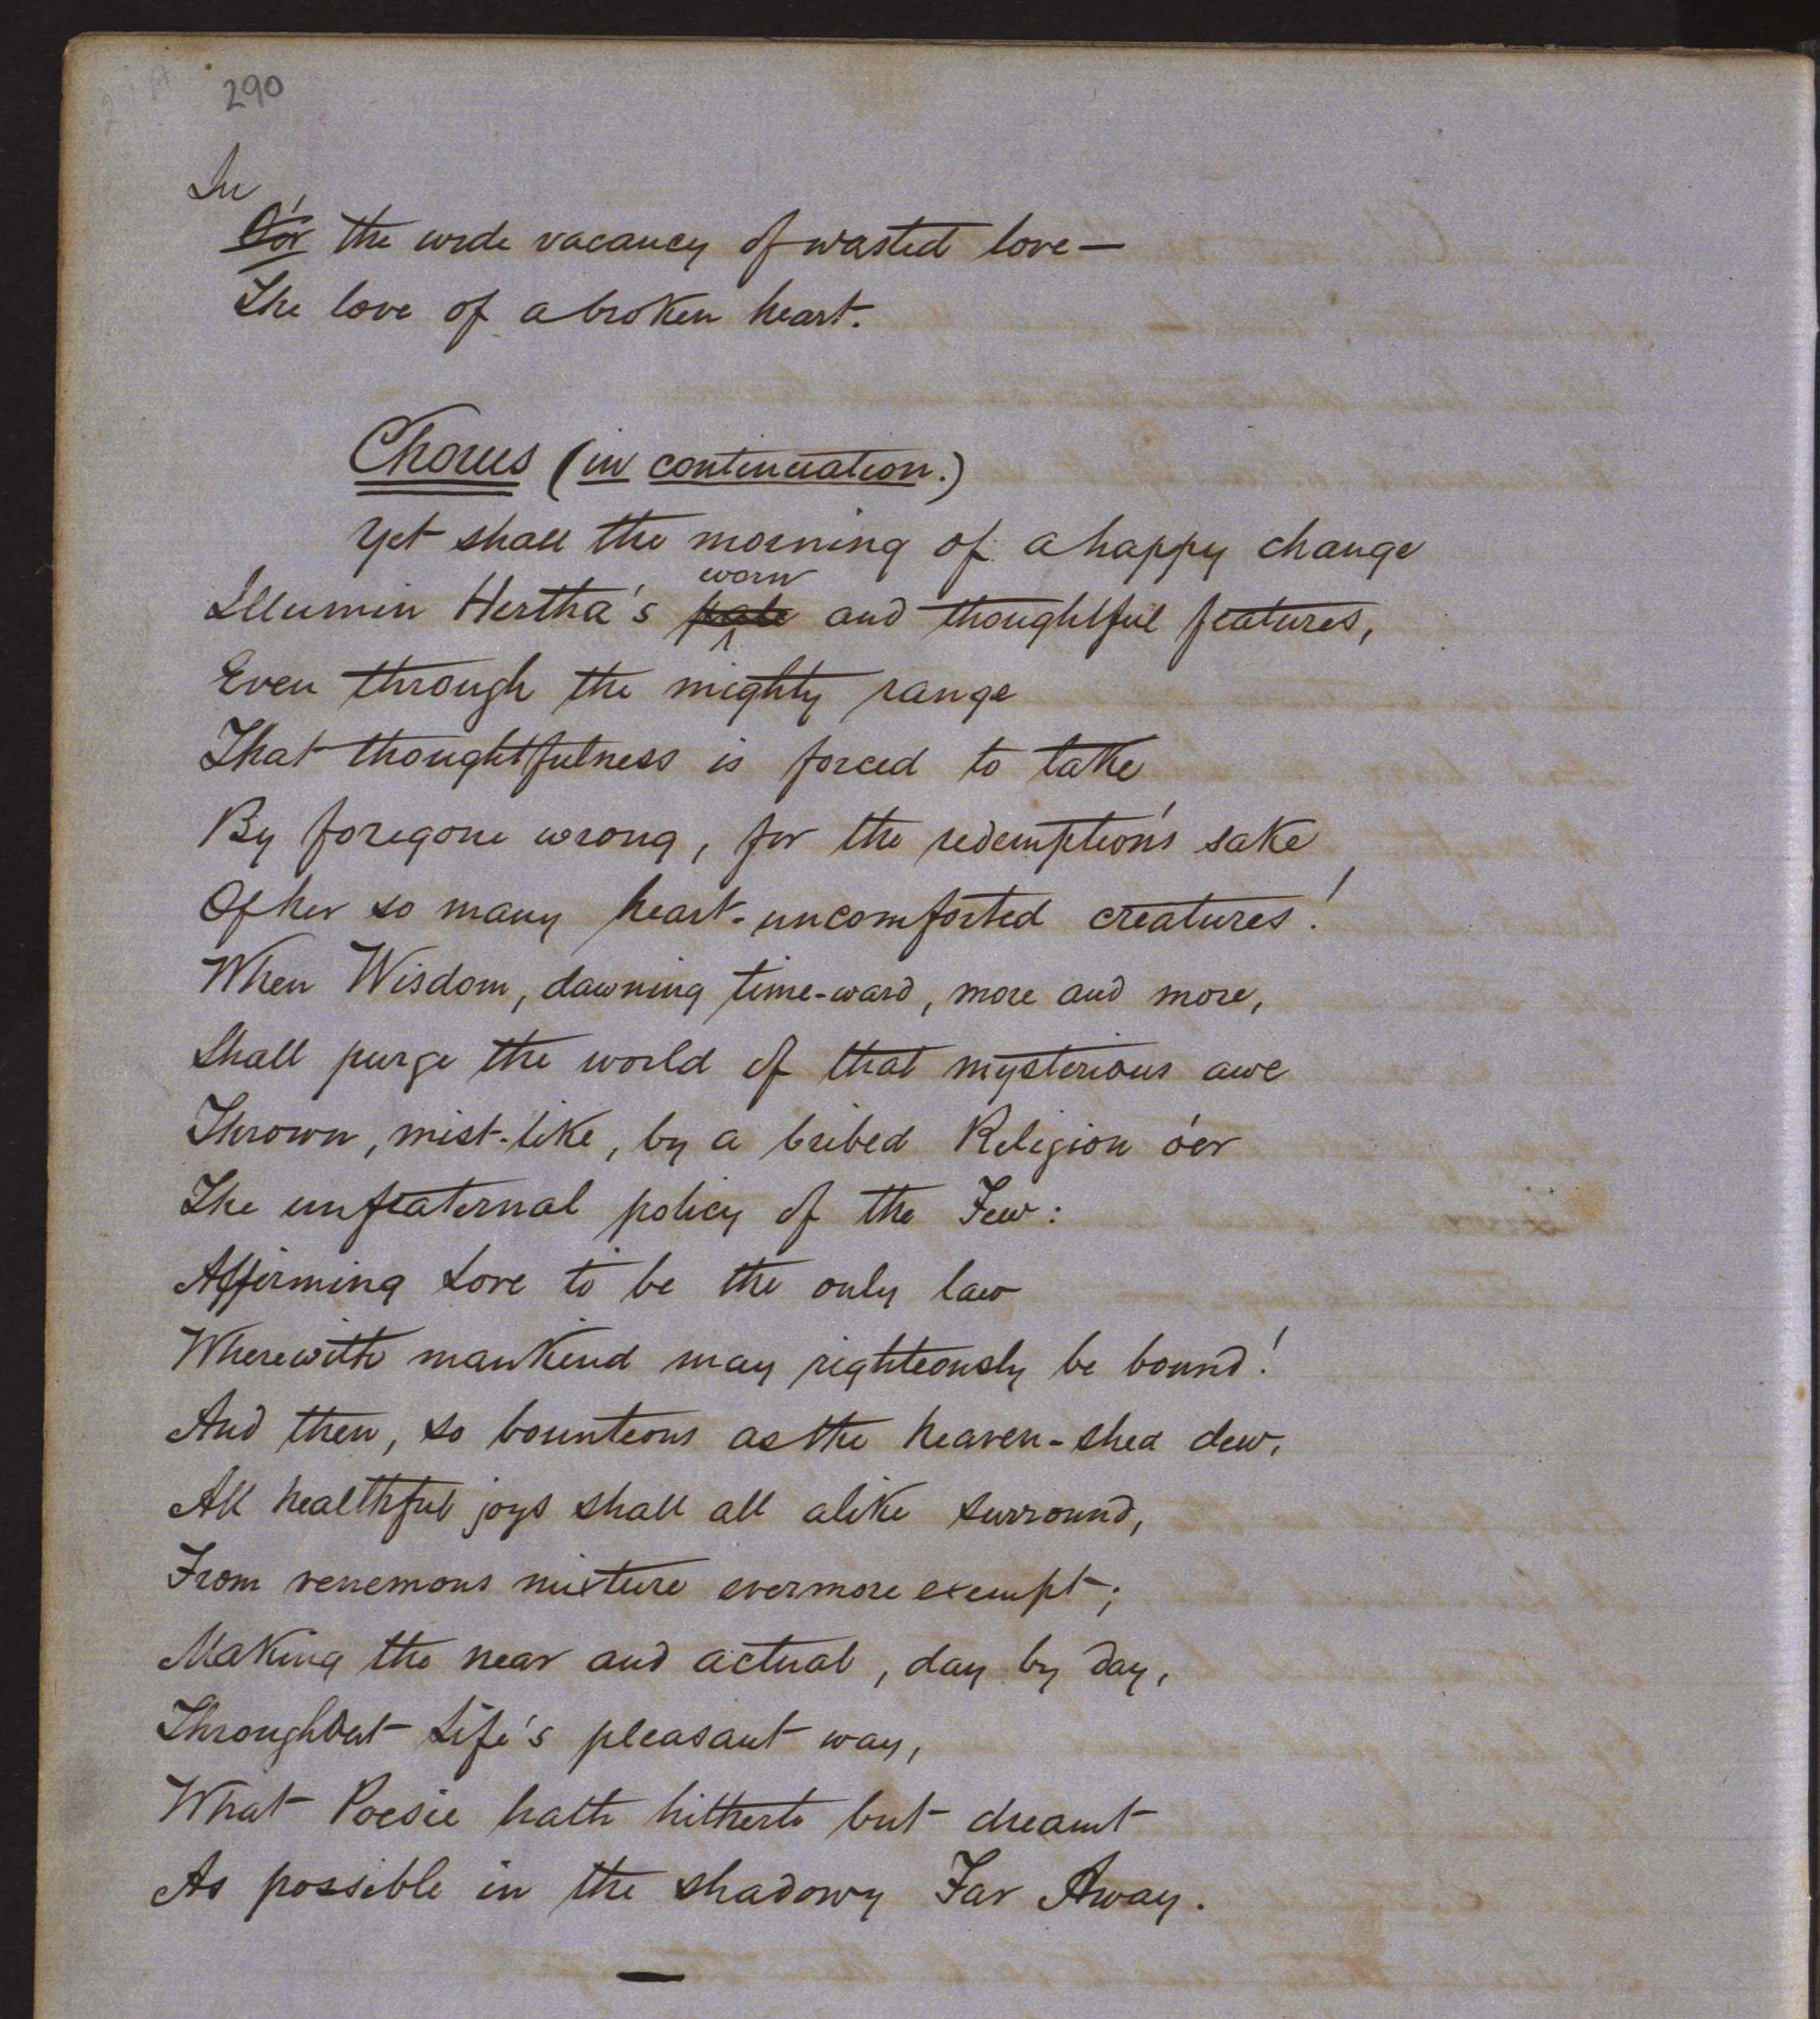 290
In
O'er the wide vacancy of wasted love—
The love of a broken heart.
Chorus (in continuation.)
Yet shall the morning of a happy change
worn
Illumin Hertha's pale and thoughtful features,
Even through the mighty range
That thoughtfulness is forced to take
By foregone wrong, for the redemption's sake
Of her so many heart-uncomforted creatures!
When Wisdom, dawning time-ward, more and more,
Shall purge the world of that mysterious awe
Thrown, mist-like, by a bribed Religion o'er
The unfraternal policy of the Few:
Affirming Love to be the only law
Wherewith mankind may righteously be bound!
And then, so bounteous as the heaven-shed dew,
All healthful joys shall all alike surround,
From venemous mixture evermore exempt;
Making the near and actual, day by day,
Throughout Life's pleasant way,
What Poesie hath hitherto but dreamt
As possible in the shadowy Far Away.